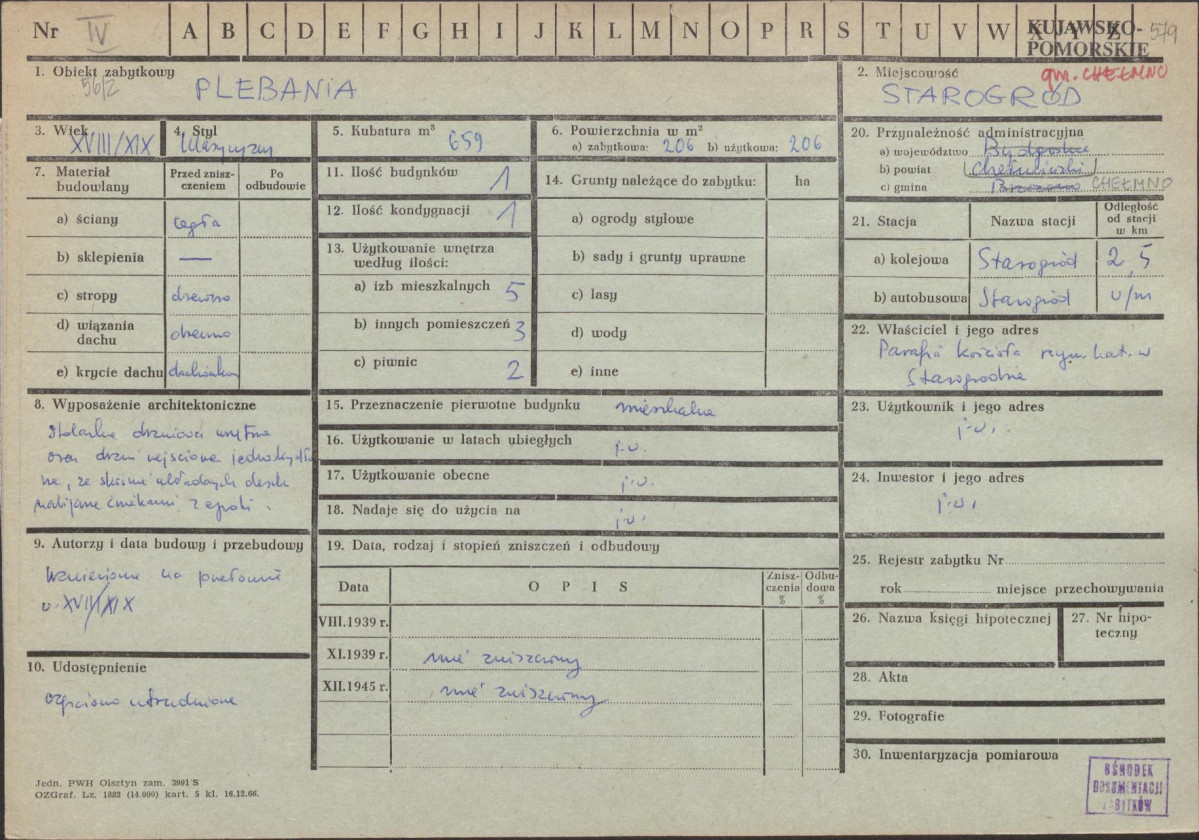 Nr IV A B C D E F G H I J K L M N O P R S T U V W X Y Z 579
KUJAWSKO-
POMORSKIE
1. Obiekt zabytkowy
56/2
PLEBANIA
2. Miejscowość
gm. CHEŁMNO
STAROGRÓD
3. Wiek
XVIII/XIX
4. Styl
klasyczny
5. Kubatura m³
659
6. Powierzchnia w m²
a) zabytkowa: 206 b) użytkowa: 206
20. Przynależność administracyjna
a) województwo Bydgoskie
b) powiat chełmiński
c) gmina CHEŁMNO
7. Materiał budowlany
Przed zniszczeniem
Po odbudowie
a) ściany cegła
b) sklepienia —
c) stropy drewno
d) wiązania dachu drewno
e) krycie dachu dachówka
11. Ilość budynków 1
12. Ilość kondygnacji 1
13. Użytkowanie wnętrza
według ilości:
a) izb mieszkalnych 5
b) innych pomieszczeń 3
c) piwnic 2
14. Grunty należące do zabytku: ha
a) ogrody stylowe
b) sady i grunty uprawne
c) lasy
d) wody
e) inne
21. Stacja
Nazwa stacji
Odległość od stacji w km
a) kolejowa Starogród 2,5
b) autobusowa Starogród v/m
22. Właściciel i jego adres
Parafia kościoła rzym. kat. w
Starogrodzie
8. Wyposażenie architektoniczne
Stolarka drzwiowa wnętrz
oraz drzwi wejściowe jednoskrzydło
we, ze skośnie układanych desek
nabijane ćwiekami z epoki.
15. Przeznaczenie pierwotne budynku mieszkalne
16. Użytkowanie w latach ubiegłych j.w.
17. Użytkowanie obecne j.w.
18. Nadaje się do użycia na j.w.
23. Użytkownik i jego adres
j.w.
24. Inwestor i jego adres
j.w.
9. Autorzy i data budowy i przebudowy
Wzniesiona na przełomie
w. XVIII/XIX
10. Udostępnienie
częściowo utrudnione
19. Data, rodzaj i stopień zniszczeń i odbudowy
Data
O P I S
Zniszczenia %
Odbudowa %
VIII.1939 r.
XI.1939 r. nie zniszczony
XII.1945 r. nie zniszczony
25. Rejestr zabytku Nr
rok miejsce przechowywania
26. Nazwa księgi hipotecznej
27. Nr hipoteczny
28. Akta
29. Fotografie
30. Inwentaryzacja pomiarowa
OŚRODEK
DOKUMENTACJI
ZABYTKÓW
Jedn. PWH Olsztyn zam. 3991 S
OZGraf. Lz. 1882 (14.000) kart. 5 kl. 16.12.66.